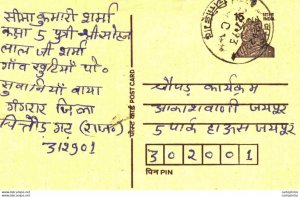 सीमा कुमारी शर्मा
कक्षा 5 पुत्री श्री सोहन
लाल जी शर्मा
गाँव खुटियाँ पो.
सुवानियाँ वाया
गंगरार जिला
चित्तौड़ गढ़ (राज.)
312901
पोस्ट कार्ड POST CARD
चौपड़ कार्यक्रम
आकाशवाणी जयपुर
5 पार्क हाऊस जयपुर
302001
पिन PIN